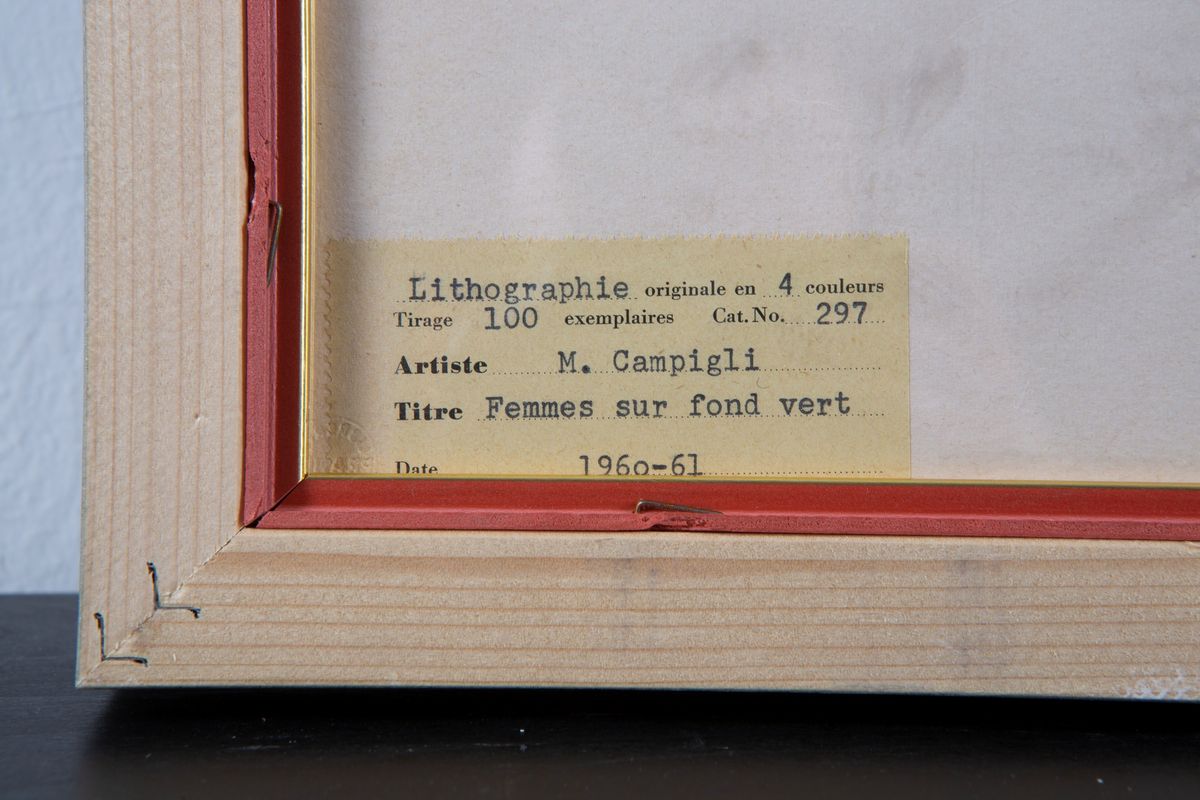 Lithographie originale en 4 couleurs
Tirage 100 exemplaires Cat. No. 297
Artiste M. Campigli
Titre Femmes sur fond vert
Date 1960-61